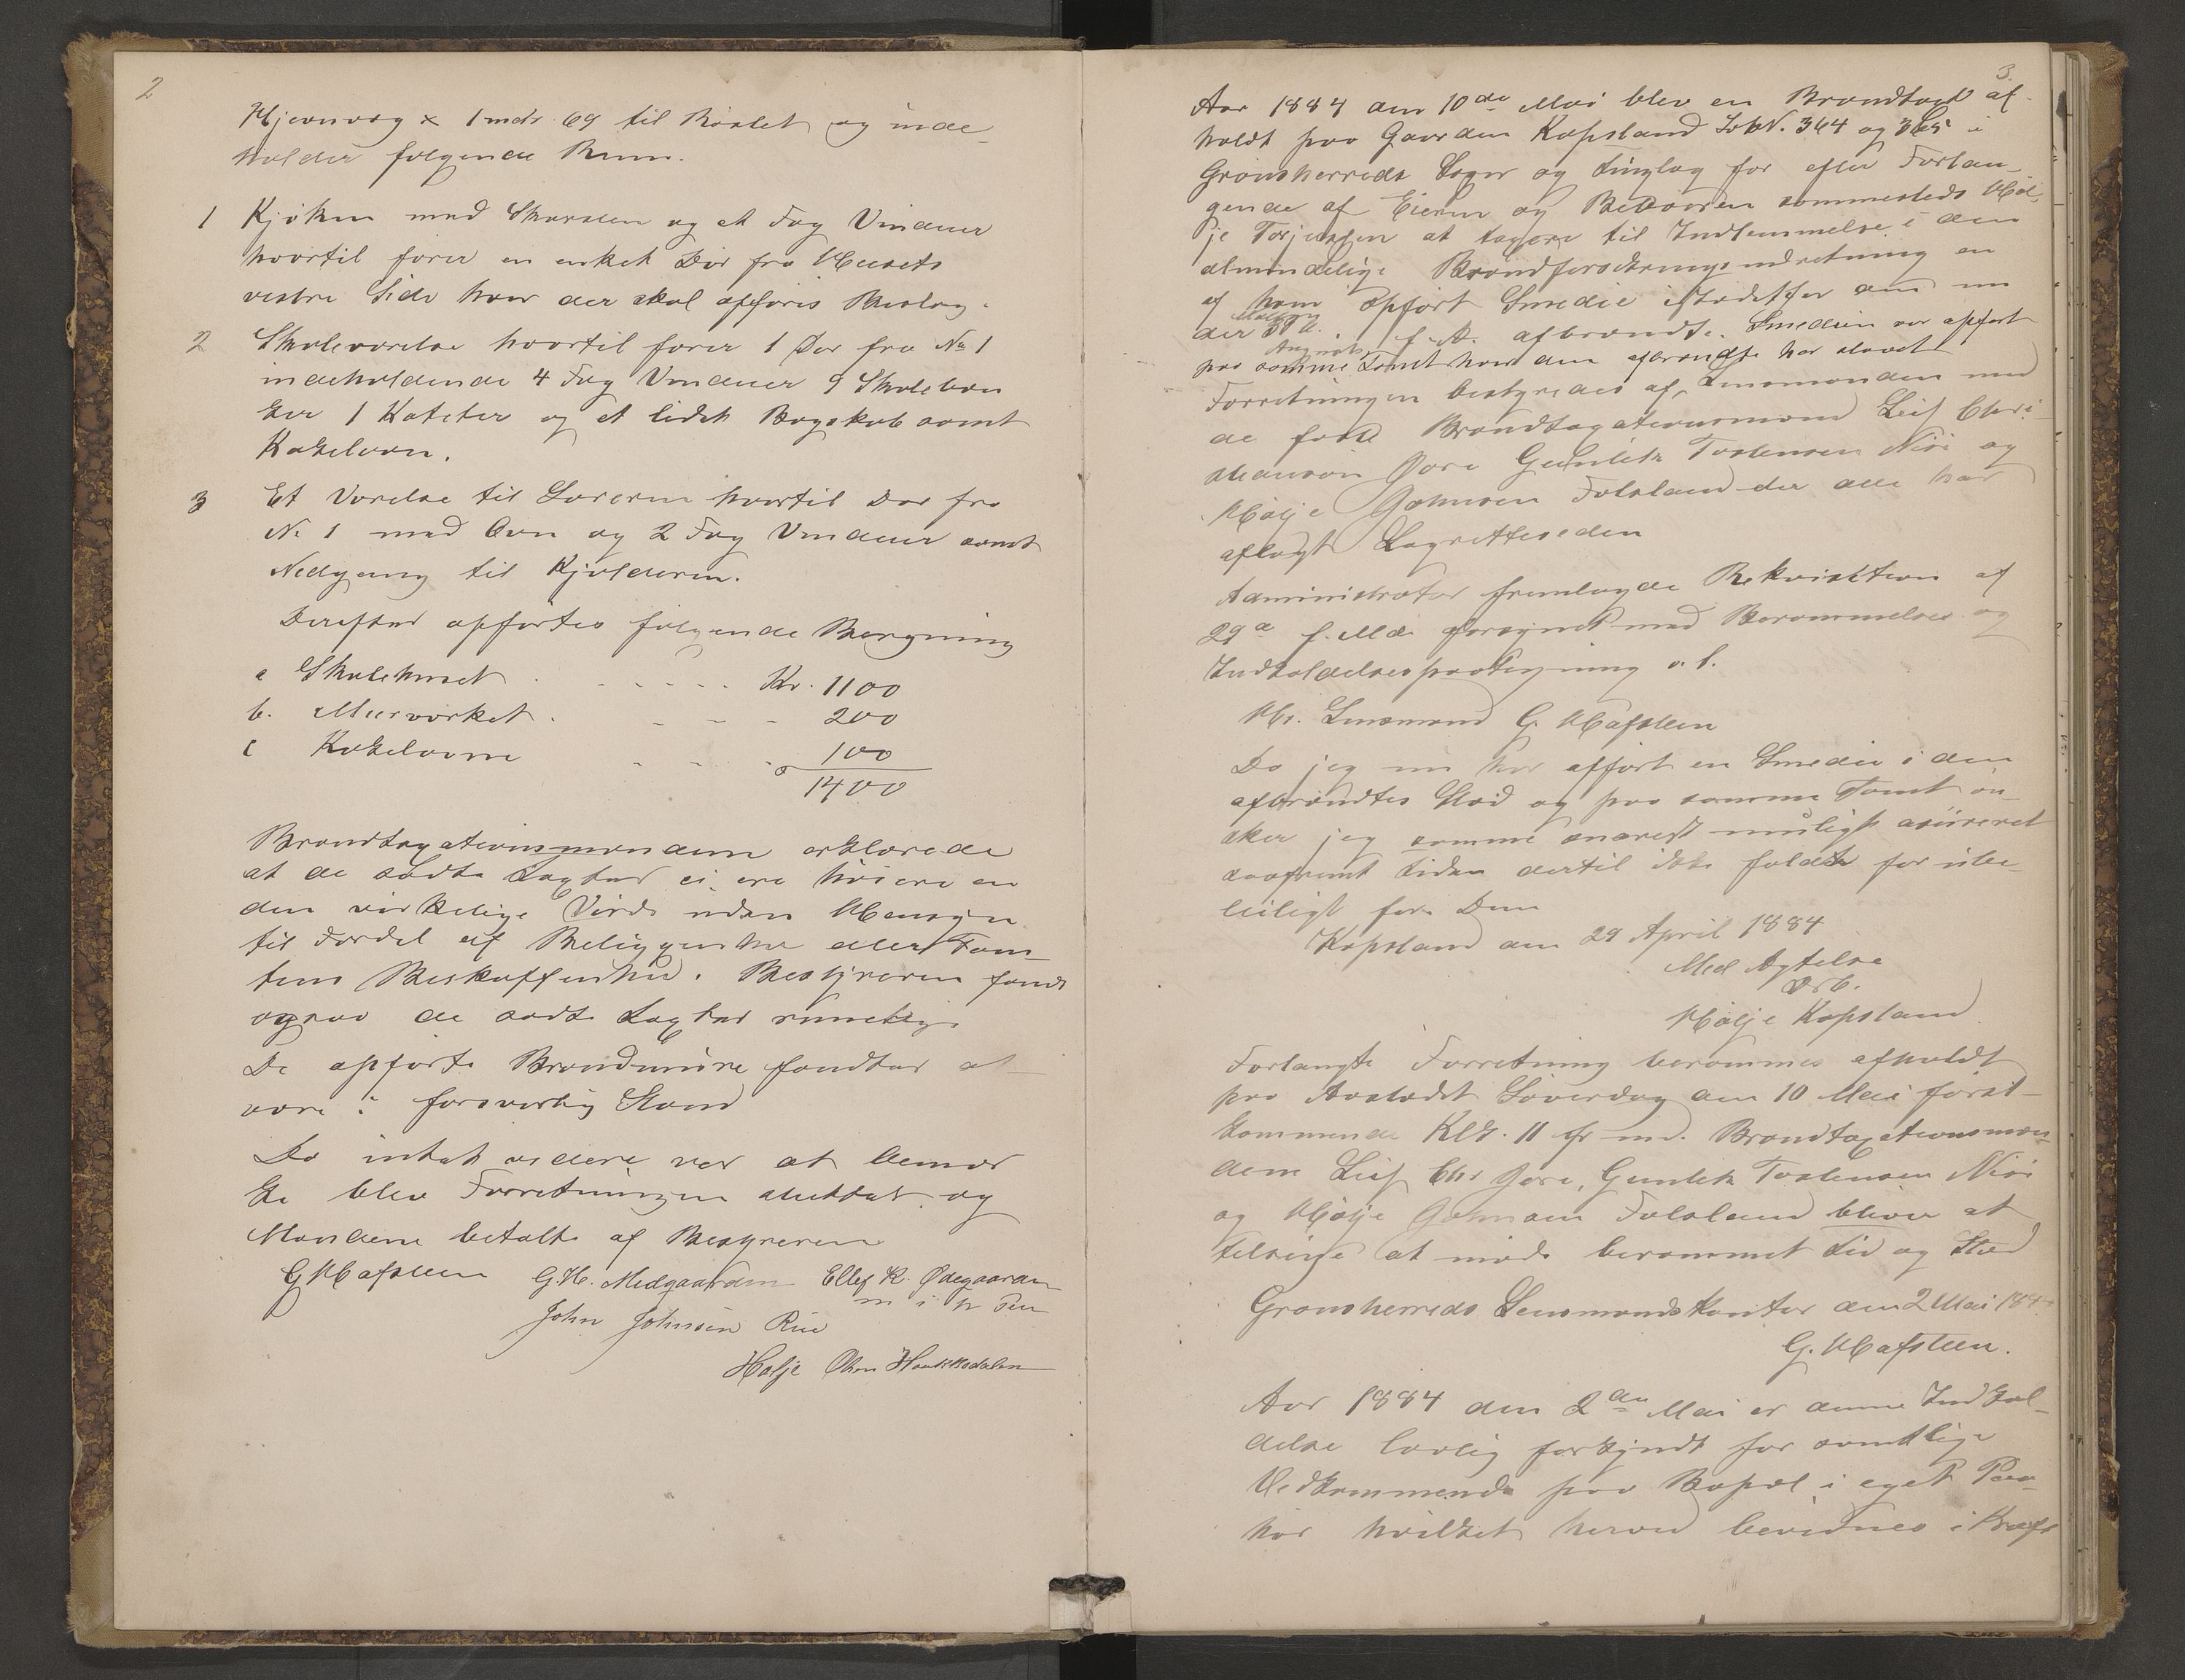 2
Hjemvæg x 1 mdr 69 til Röstet og inde-
holder følgende Rum.
1 Kjøken med Skorsten og et Fag Vinduer
hvortil fører en enkelt Dør fra Husets
vestre Side hvor der skal opføres Bislag.
2 Skoleværelse hvortil fører 1 Dør fra No 1
indeholdende 4 Fag Vinduer 9 Skolebæn
ker 1 Kateter og et lidet Bogskab samt
Kakelovn.
3 Et Værelse til Læreren hvortil Dør fra
No 1 med Ovn og 2 Fag Vinduer samt
Nedgang til Kjælderen.
Derefter opførtes følgende Beregning
a Skolehuset . . . . . Kr. 1100
b. Muurværket . - - - 200
c Kakelovne - - - 100
1400
Brandtaxationsmændene erklærede
at de satte Taxter ei ere høiere en
den virkelige Værdi uden Hensyn
til Fordel af Beliggenhe eller Tom-
tens Beskaffenhed. Bestyreren fandt
ogsaa de satte Taxter rimelige
De opførte Brandmure fandtes at
være i forsvarlig Stand
Da intet videre var at bemær
ke blev Forretningen sluttet og
Mændene betalt af Bestyreren
G Hafsteen G. H. Midgaarden Ellef K. Ødegaarden
m i h Pen
John Johnsen Rue
Halje Olsen Haukkedalen
3.
Aar 1884 den 10de Mai blev en Brandtaxt af-
holdt paa Gaarden Kopsland LbN. 364 og 365 i
Gransherreds Sogn og Tinglag for efter Forlan-
gende af Eieren og Beboeren sammesteds Høl-
je Torjussen at taxere til Indlemmelse i den
almindelige Brandforsikringsindretning en
af ham opført Smedie istedetfor den un
der f. A. afbrændte. Smedien var opført
paa samme Tomt hvor den afbrændte har staaet
Forretningen bestyredes af Lensmanden med
de faste Brandtaxationsmænd Leif Chri-
stensen Jore Gunlek Torstensen Nisi og
Hølje Johnsen Folsland der alle har
aflagt Lagretteseden
Administrator fremlagde Rekvisition af
29de f. Md. forsynet med Berammelse og
Indkaldelsespaategning s. l.
Hr. Lensmand G. Hafsteen
Da jeg nu har opført en Smedie i den
afbrændtes Sted og paa samme Tomt øn-
sker jeg samme snarest muligt assureret
saafremt tiden dertil ikke falder for ube-
leiligt for Dem
Kopsland den 29 April 1884
Med Agtelse
Ærb.
Hølje Kopsland
Forlangte Forretning berammes afholdt
paa Aastedet Løverdag den 10 Mai først-
kommende Klk. 11 fr md. Brandtaxationsmæn-
dene Leif Chr Jore, Gunlek Torstensen Nisi
og Hølje Johnsen Folsland bliver at
tilsige at møde berammet Tid og Sted
Gransherreds Lensmandskontor den 2 Mai 1884
G. Hafsteen.
Aar 1884 den 2den Mai er denne Indkal-
delse lovlig forkyndt for samtlige
Vedkommende paa Bopæl i eget Paa-
hør hvilket herved bevidnes i Kraft